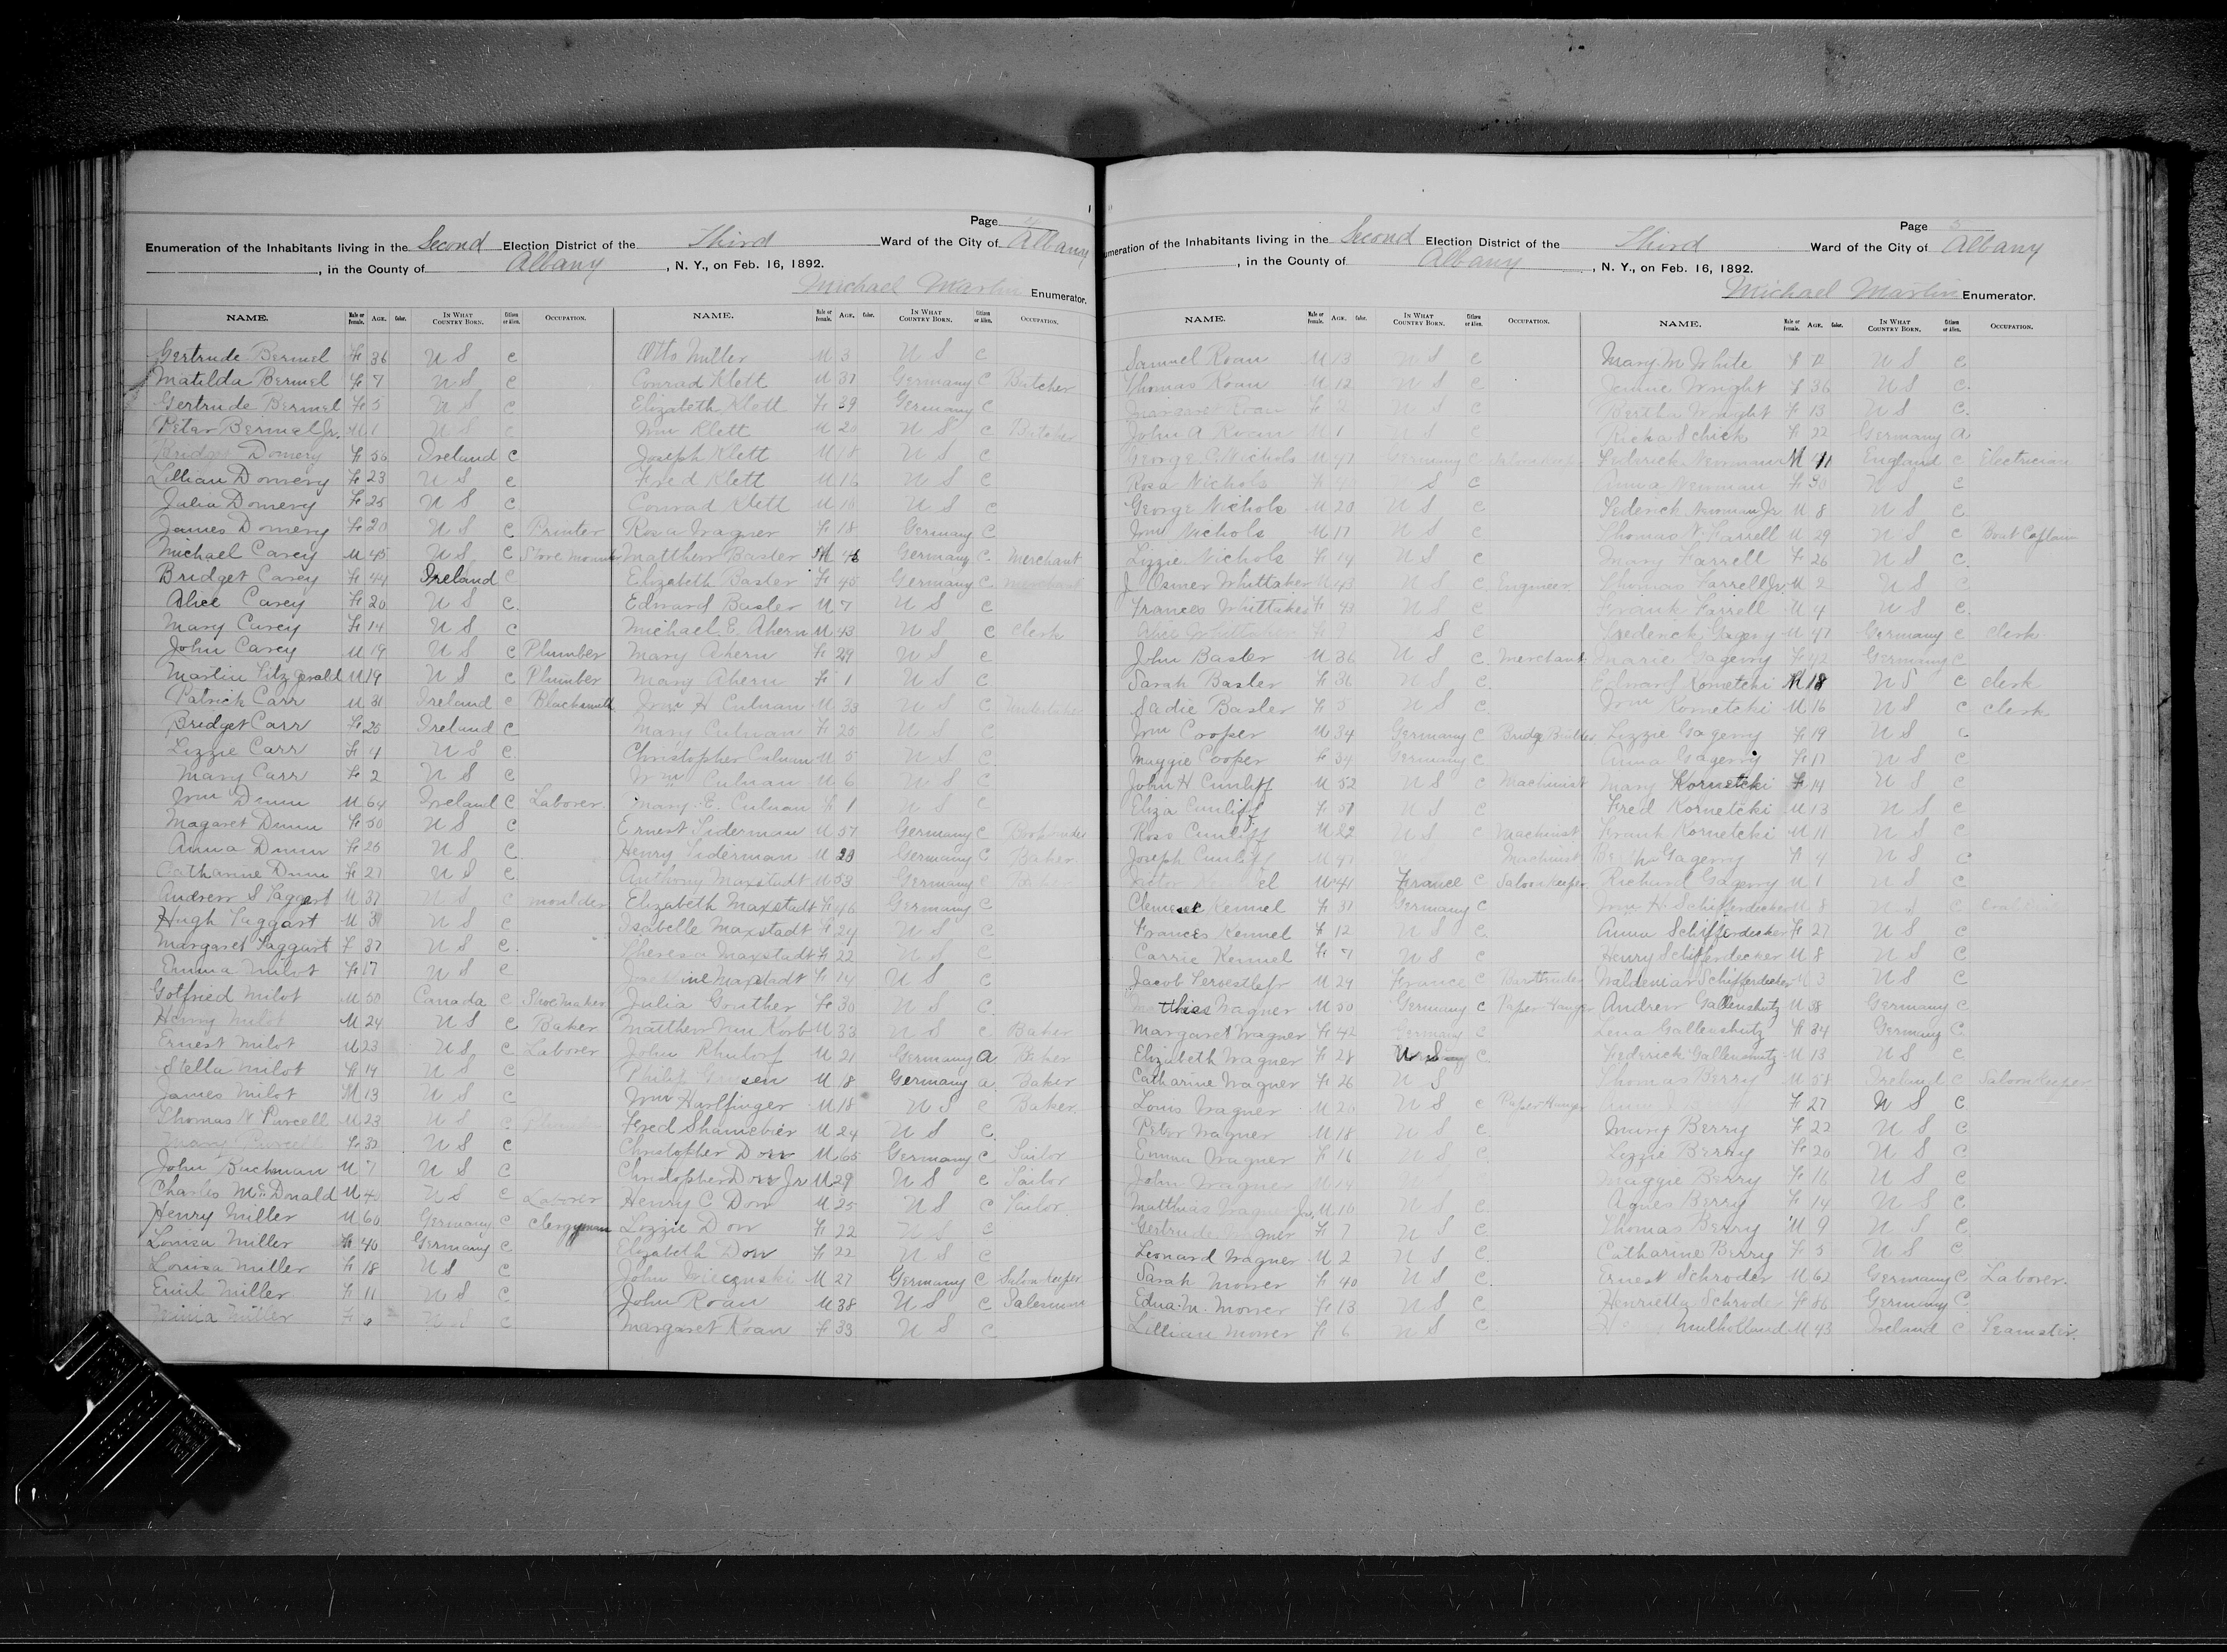 Page 4
Enumeration of the Inhabitants living in the Second Election District of the Third Ward of the City of Albany
, in the County of Albany , N. Y., on Feb. 16, 1892.
Michael Martin Enumerator.
NAME. Male or Female. AGE. Color. IN WHAT COUNTRY BORN. Citizen or Alien. OCCUPATION.
Gertrude Bermel Fe 36 U S C
Matilda Bermel Fe 7 U S C
Gertrude Bermel Fe 5 U S C
Peter Bermel Jr. M 1 U S C
Bridget Domery Fe 56 Ireland C
Lillian Domery Fe 23 U S C
Julia Domery Fe 25 U S C
James Domery Fe 20 U S C Printer
Michael Carey M 45 U S C Stove
Bridget Carey Fe 44 Ireland C
Alice Carey Fe 20 U S C.
Mary Carey Fe 14 U S C
John Carey M 19 U S C Plumber
Martin Fitzgerald M 19 U S C Plumber
Patrick Carr M 31 Ireland C Blacksmith
Bridget Carr Fe 25 Ireland C
Lizzie Carr Fe 4 U S C.
Mary Carr Fe 2 U S C
Wm Dunn M 64 Ireland C Laborer.
Magaret Dunn Fe 50 U S C
Anna Dunn Fe 25 U S C.
Catharine Dunn Fe 27 U S C.
Andrew S Taggart M 37 U S C moulder
Hugh Taggart M 31 U S C
Margaret Taggart F 37 U S C.
Emma Milot Fe 17 U S C
Gotfried Milot M 50 Canada C Shoe Maker
Henry Milot M 24 U S C Baker
Ernest Milot M 23 U S C Laborer
Stella Milot Fe 14 U S C
James Milot M 13 U S C
Thomas N Purcell M 23 U S C
Mary Purcell Fe 32 U S C
John Buchman M 7 U S C
Charles McDonald M 40 U S C Laborer
Henry Miller M 60 Germany C Clergyman
Louisa Miller Fe 40 Germany C
Louisa Miller Fe 18 U S C
Emil Miller Fe 11 U S C
Miller U S C
NAME. Male or Female. AGE. Color. IN WHAT COUNTRY BORN. Citizen or Alien. OCCUPATION.
Otto Miller M 3 U S C
Conrad Klett M 37 Germany C Butcher
Elizabeth Klett Fe 39 Germany C
Wm Klett M 20 U S C Butcher
Joseph Klett M 18 U S C
Fred Klett M 16 U S C
Conrad Klett M 10 U S C
Rosa Wagner Fe 18 Germany C
Matthew Basler M 46 Germany C. Merchant
Elizabeth Basler Fe 45 Germany C. merchant
Edward Basler M 7 U S C
Michael E. Ahern M 43 U S C Clerk
Mary Ahern Fe 29 U S C
Mary Ahern Fe 1 U S C
Wm H Culnan M 33 U S C Undertaker
Mary Culnan Fe 25 U S C
Christopher Culnan M 5 U S C
Wm Culnan M 6 U S C
Mary E. Culnan Fe 1 U S C
Ernest Siderman M 57 Germany C
Henry Siderman M 20 Germany C Baker
Anthony Maxstadt M 53 Germany C
Elizabeth Maxstadt Fe 46 Germany C
Isabelle Maxstadt Fe 24 U S C
Theresa Maxstadt Fe 22 U S C
Josephine Maxstadt Fe 14 U S C
Julia Gonther Fe 30 U S C.
Matthew M 33 U S C Baker
John Rhudorf M 21 Germany A Baker
Philip M 18 Germany a. Baker
Wm Harlfinger M 18 U S C Baker.
Fred M 24 U S C.
Christopher Dorr M 65 Germany C Tailor
Christopher Dorr Jr M 29 U S C Tailor
Henry C Dorr M 25 U S C Tailor.
Lizzie Dorr Fe 22 U S C
Elizabeth Dorr Fe 22 U S C
John M 27 Germany C Saloon keeper
John Roan M 38 U S C Salesman
Margaret Roan Fe 33 U S C
Page 5
Enumeration of the Inhabitants living in the Second Election District of the Third Ward of the City of Albany
, in the County of Albany , N. Y., on Feb. 16, 1892.
Michael Martin Enumerator.
NAME. Male or Female. AGE. Color. IN WHAT COUNTRY BORN. Citizen or Alien. OCCUPATION.
Samuel Roan M 13 U S C
Thomas Roan M 12 U S C
Margaret Roan F 2 U S C
John A Roan M 1 U S C
George C Nichols M 47 Germany C Saloon keeper
Rosa Nichols S C
George Nichols M 20 U S C
Wm Nichols M 17 U S C
Lizzie Nichols Fe 14 U S C
J Osmer Whittaker M 43 U S C Engineer.
Frances Whittaker Fe 43 U S C
Alice Whittaker S C
John Basler M 36 U S C. Merchant
Sarah Basler Fe 36 U S C.
Sadie Basler F 5 U S C.
Wm Cooper M 34 Germany C Bridge Builder
Maggie Cooper Fe 34 Germany C
John H Cunliff M 52 U S C Machinist
Eliza Cunliff Fe 51 U S C
Ross Cunliff M 22 U S C Machinist
Joseph Cunliff M Machinist
Victor Kennel M 41 France C Saloon Keeper
Kennel Fe 31 Germany C
Frances Kennel Fe 12 U S C.
Carrie Kennel Fe 7 U S C
Jacob M 24 France C Bartender
Matthias Wagner M 50 Germany C Paper Hanger
Margaret Wagner Fe 42 Germany C
Elizabeth Wagner Fe 28 U S C
Catharine Wagner Fe 26 U S
Louis Wagner M 20 U S C Paper Hanger
Peter Wagner M 18 U S C
Emma Wagner Fe 16 U S C
John Wagner M 14
Matthias Wagner Jr. M 10 U S C.
Gertrude Wagner Fe 7 U S C
Leonard Wagner M 2 U S C
Sarah Morrer Fe 40 U S C.
Edna M. Morrer Fe 13 U S C
Lillian Morrer Fe 6 U S C.
NAME. Male or Female. AGE. Color. IN WHAT COUNTRY BORN. Citizen or Alien. OCCUPATION.
Mary M White F 12 U S C
Jennie Wright F 36 U S C.
Bertha Wright Fe 13 U S C.
Richa Schick F 22 Germany A
Federick Newman M 41 England C Electrician
Anna Newman Fe 30 U S C
Federick Newman Jr M 8 U S C.
Thomas N. Farrell M 29 U S C Boat Captain
Mary Farrell F 26 U S C.
Thomas Farrell Jr. M 2 U S C
Frank Farrell M 4 U S C.
Frederick Gagery M 47 Germany C Clerk
Marie Gagerry Fe 42 Germany C
Edward Kornetcki M 18 U S C Clerk
Wm Kornetcki M 16 U S C Clerk
Lizzie Gagerry Fe 19 U S C
Anna Gagerry Fe 17 U S C
Mary Kornetcki Fe 14 U S C
Fred Kornetcki M 13 U S C
Frank Kornetcki M 11 U S C
Bertha Gagerry Fe 4 U S C
Richard Gagerry M 1 U S C
Wm H Schifferdecker M U S C
Anna Schifferdecker Fe 27 U S C
Henry Schifferdecker M 8 U S C
Waldemar Schifferdecker M 3 U S C
Andrew Gallenshutz M 38 Germany C
Lena Gallenshutz Fe 34 Germany C
Federick Gallenshutz M 13 U S C
Thomas Berry M 57 Ireland C Saloon keeper
Fe 27 U S C
Mary Berry Fe 22 U S C
Lizzie Berry Fe 20 U S C
Maggie Berry Fe 16 U S C
Agnes Berry Fe 14 U S C
Thomas Berry M 9 U S C
Catharine Berry Fe 5 U S C
Ernest Schroder M 62 Germany C. Laborer.
Henrietta Schroder Fe 56 Germany C
Mulholland M 43 Ireland C Teamster.